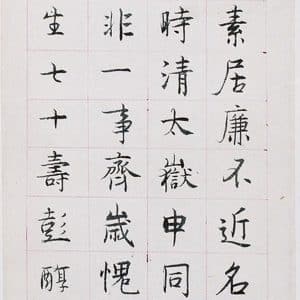 素居廉不近名
時清太嶽申同
非一事齊歲愧
生七十壽彭醇